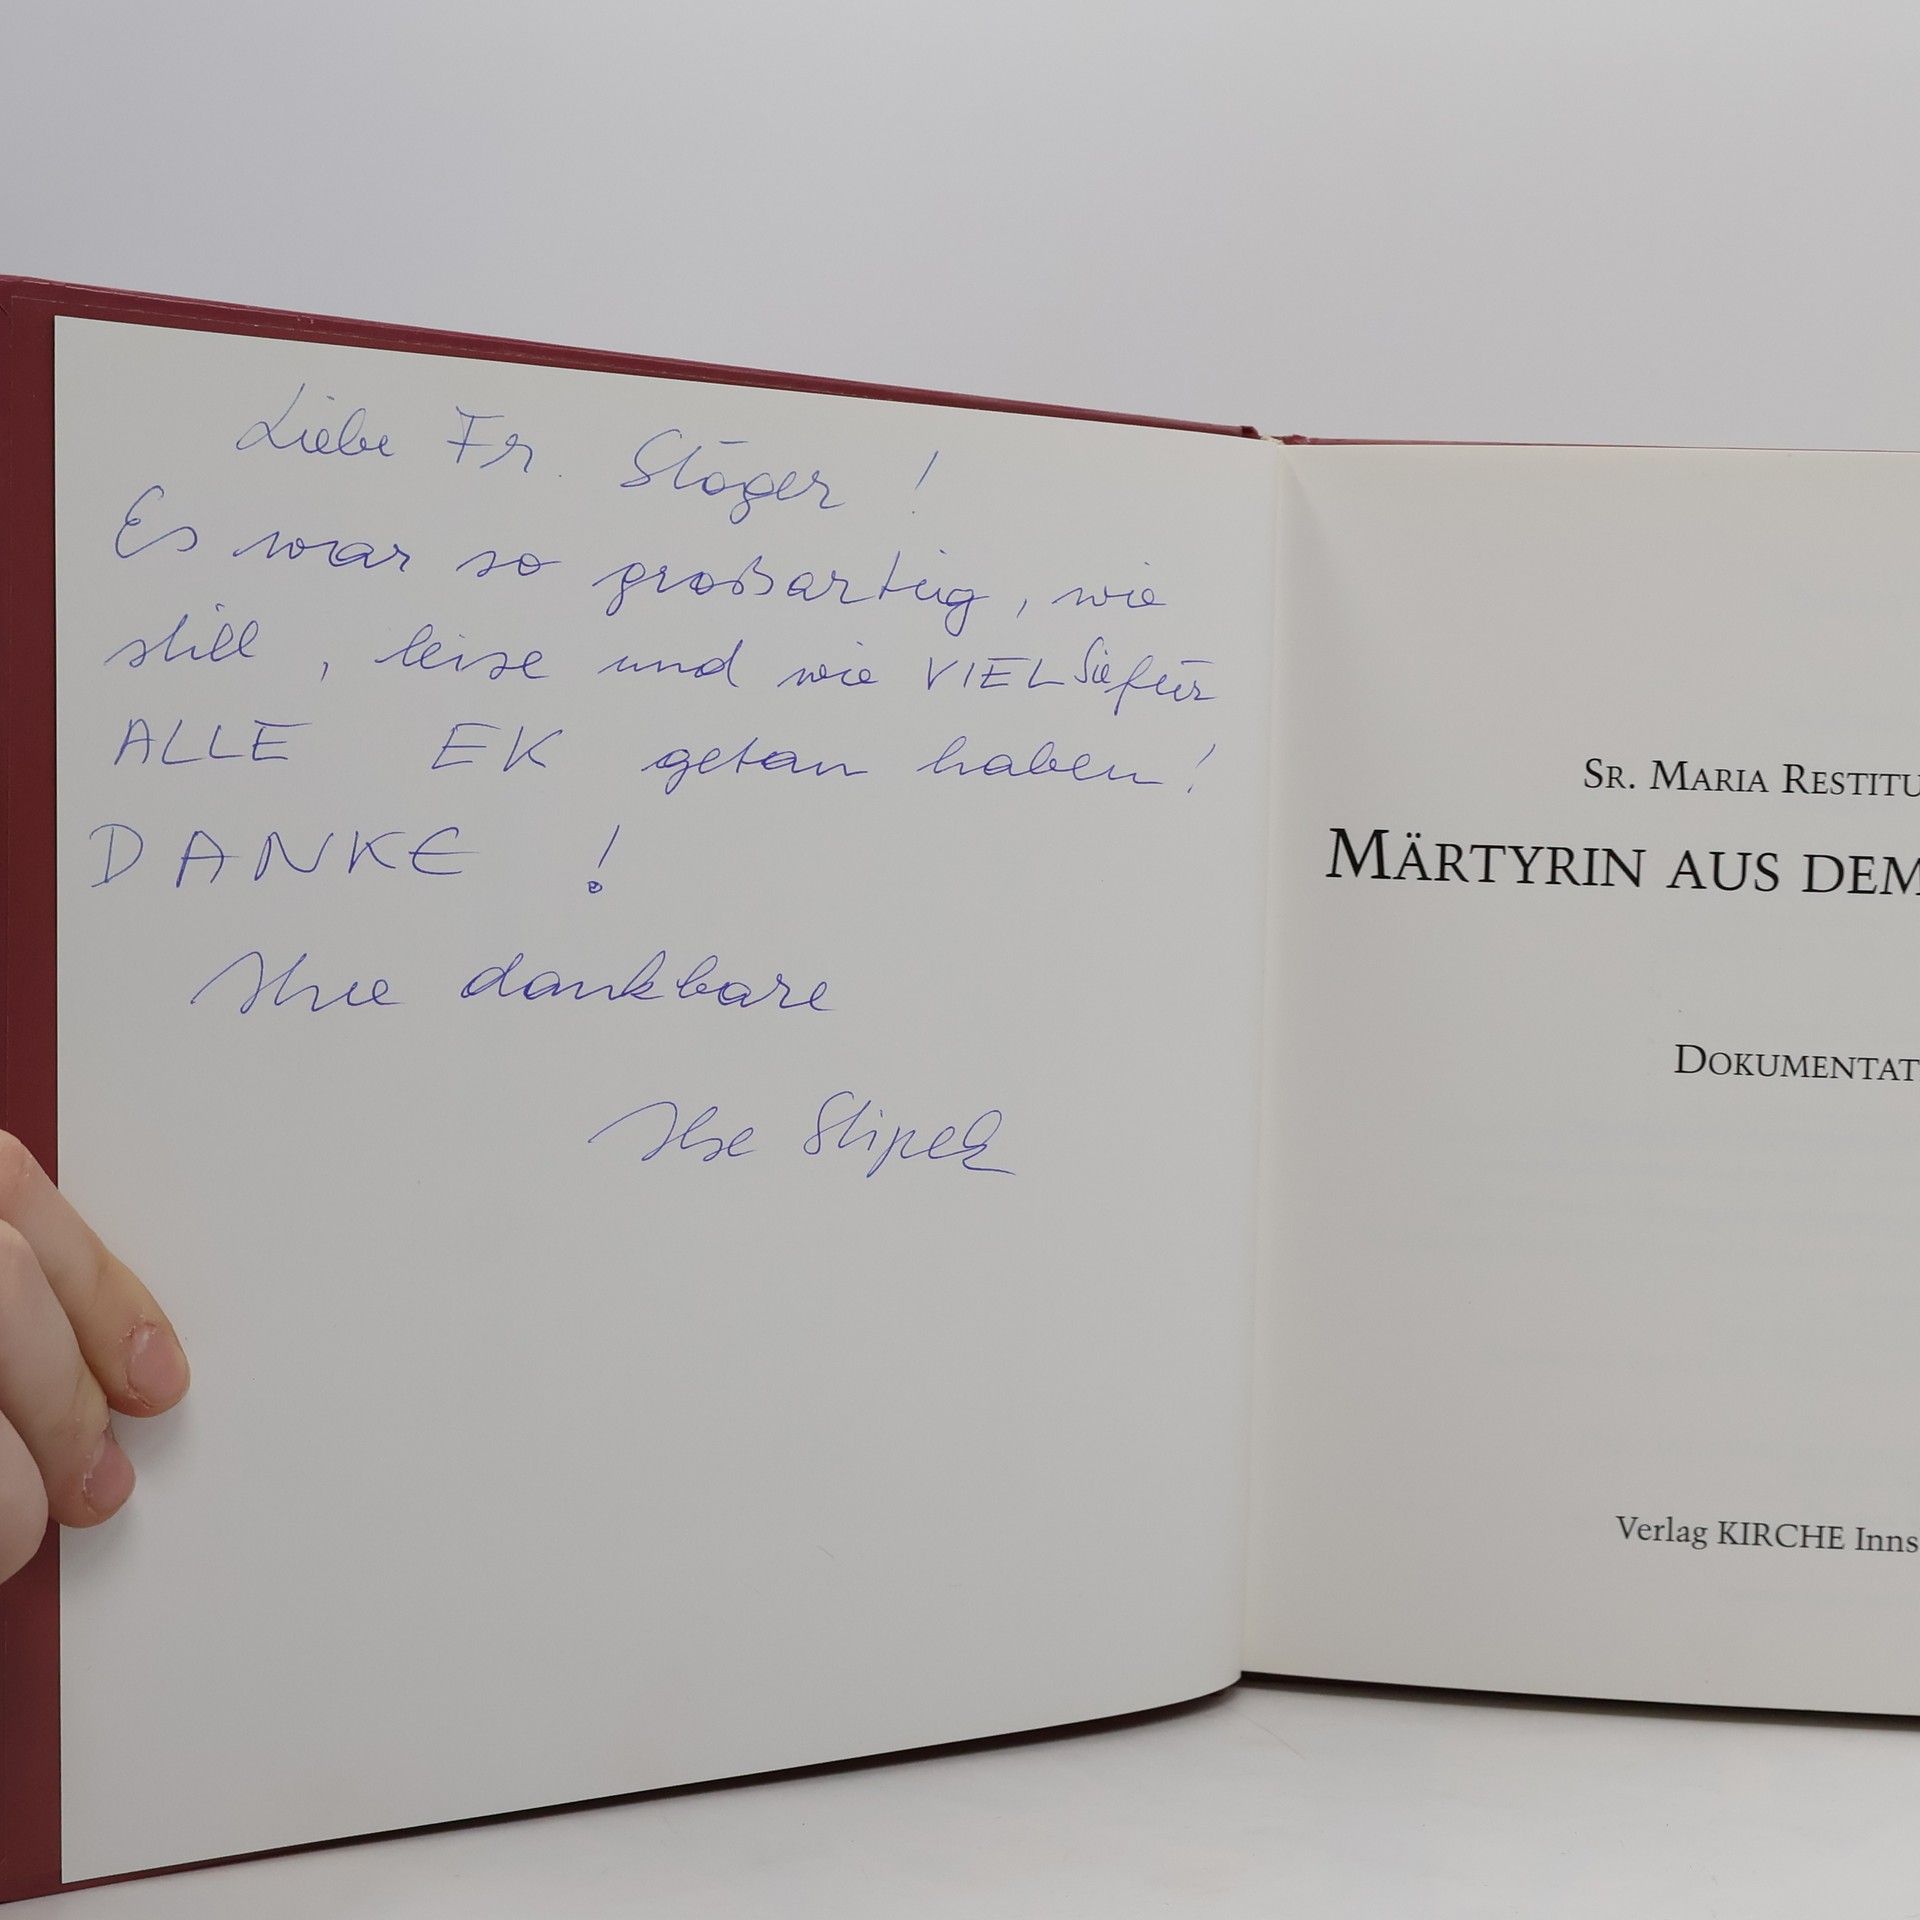 Liebe Fr. Stöger !
Es war so großartig, wie
still, leise und wie VIEL Sie für
ALLE EK getan haben!
DANKE !
Ihre dankbare
Ilse Stipek
SR. MARIA RESTITU
MÄRTYRIN AUS DEM
DOKUMENTAT
Verlag KIRCHE Inns